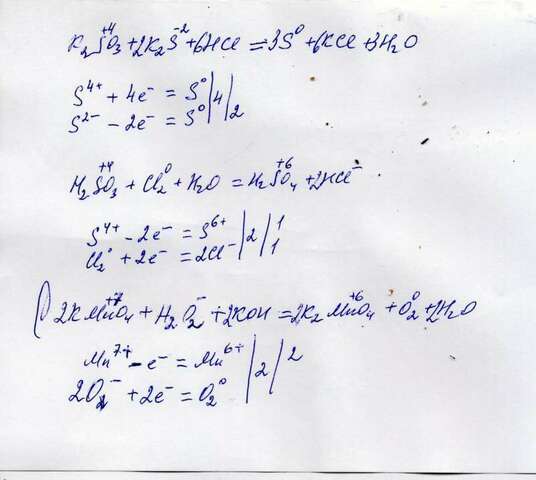 K₂S⁺⁴O₃ + 2K₂S⁻² + 6HCl = 3S⁰ + 6KCl + 3H₂O
S⁴⁺ + 4e⁻ = S⁰ | 4 |
S²⁻ - 2e⁻ = S⁰ | | 2
H₂S⁺⁴O₃ + Cl₂⁰ + H₂O = H₂S⁺⁶O₄ + 2HCl⁻
S⁴⁺ - 2e⁻ = S⁶⁺ | 2 | 1
Cl₂⁰ + 2e⁻ = 2Cl⁻ | | 1
2KMn⁺⁷O₄ + H₂O₂⁻ + 2KOH = 2K₂Mn⁺⁶O₄ + O₂⁰ + 2H₂O
Mn⁷⁺ - e⁻ = Mn⁶⁺ | | 2
2O₂⁻ + 2e⁻ = O₂⁰ | 2 |